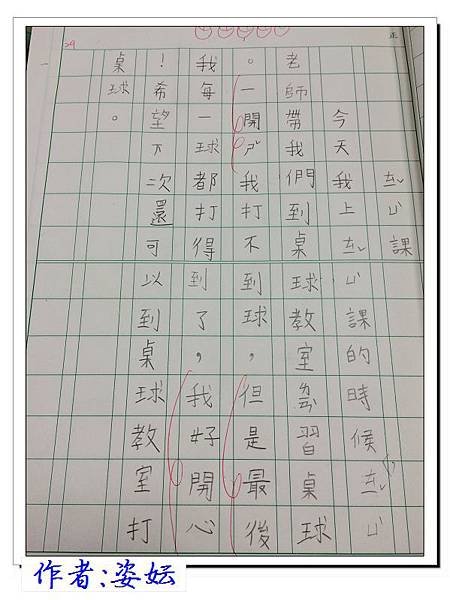 ㄊㄧˇㄩˋ課
今天我上ㄊㄧˇㄩˋ課的時候ㄊㄧˇㄩˋ
老師帶我們到桌球教室習桌球
。一開ㄕˇ我打不到球,但是最後
我每一球都打得到了,我好開心
!希望下次還可以到桌球教室打
桌球。
作者:姿妘